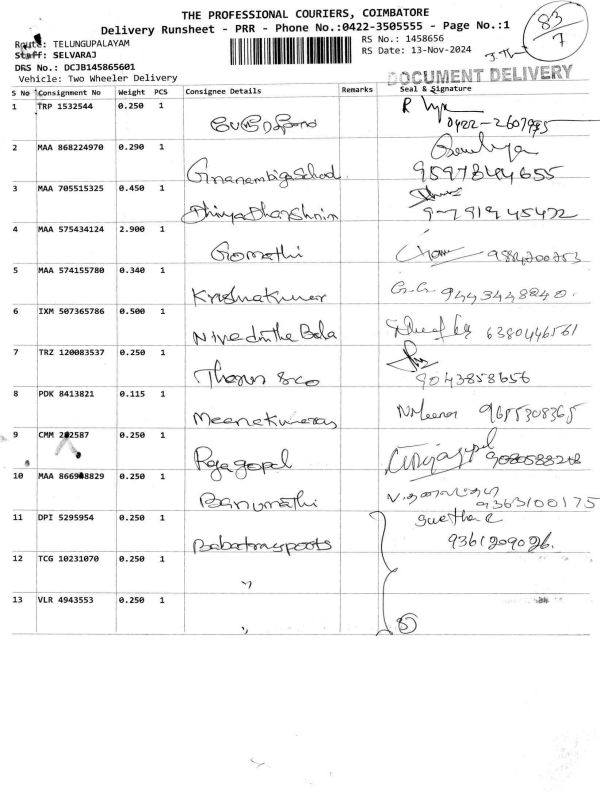 THE PROFESSIONAL COURIERS, COIMBATORE
Delivery Runsheet - PRR - Phone No.:0422-3505555 - Page No.:1
83/7
Route: TELUNGUPALAYAM
RS No.: 1458656
Staff: SELVARAJ
RS Date: 13-Nov-2024
DRS No.: DCJB145865601
Vehicle: Two Wheeler Delivery
DOCUMENT DELIVERY
S No Consignment No Weight PCS Consignee Details Remarks Seal & Signature
1 TRP 1532544 0.250 1
2 MAA 868224970 0.290 1
Gnanambiga School 9597844655
3 MAA 705515325 0.450 1
Dhivya Dharshnin
4 MAA 575434124 2.900 1
Gomathi 9884200253
5 MAA 574155780 0.340 1
Krishnakumar 9443448840.
6 IXM 507365786 0.500 1
Bala 6380446561
7 TRZ 120083537 0.250 1
Tharun &co 9043858656
8 PDK 8413821 0.115 1
Meenakumaran N.Meena 9655308365
9 CMM 2 2587 0.250 1
Rajagopal
10 MAA 866908829 0.250 1
Banumathi 9363100175
11 DPI 5295954 0.250 1
9361209026.
12 TCG 10231070 0.250 1
"
13 VLR 4943553 0.250 1
"